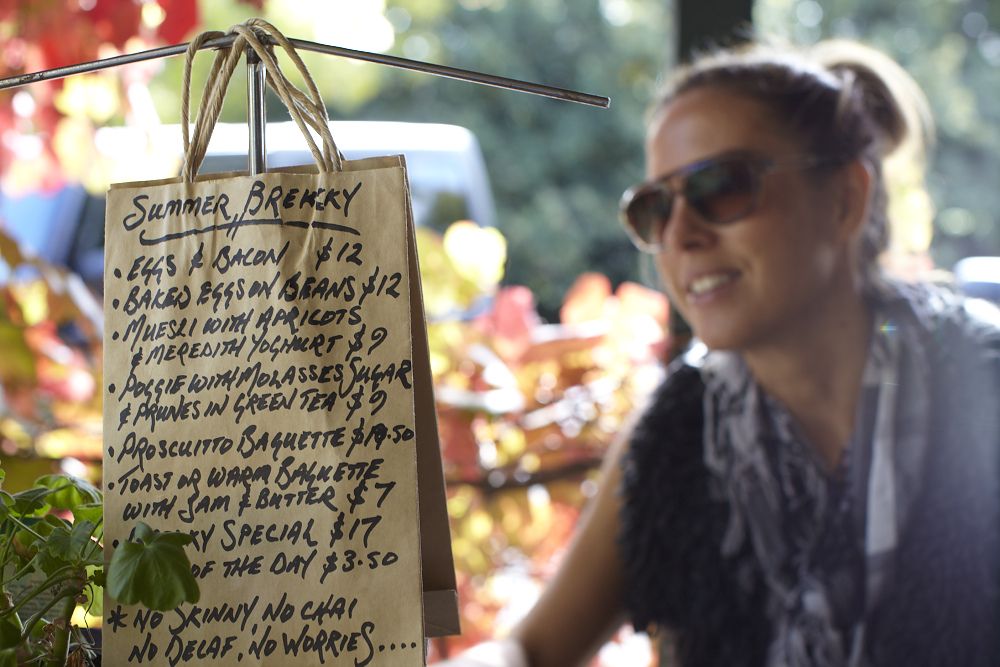 Summer, Brekky
• Eggs & Bacon $12
• Baked Eggs on Beans $12
• Muesli with Apricots
& Meredith Yoghurt $9
• Poggie with Molasses Sugar
& Prunes in Green Tea $9
• Proscuitto Baguette $10.50
• Toast or Warm Baguette
with Jam & Butter $7
Special $17
of the Day $3.50
* No Skinny, No Chai
No Decaf, No Worries....